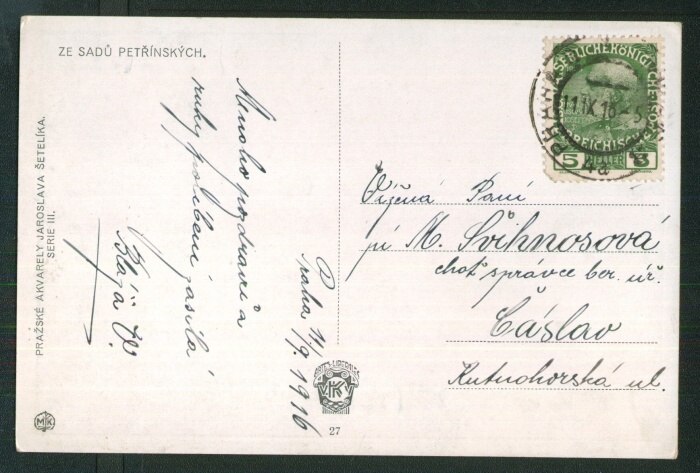 ZE SADŮ PETŘÍNSKÝCH.
PRAŽSKÉ AKVARELY JAROSLAVA ŠETELÍKA.
SERIE III.
Mnoho pozdravů a
ruky políbení zasílá
Praha 11/9. 1916
27
MK
VKK
KAISERLICHEKÖNIGLICHE
5 HELLER
PRAHA
11.IX.16
4a
Vážená Paní
pí M. Svihnosová
choť správce ber. úř.
Čáslav
Kutnohorská ul.